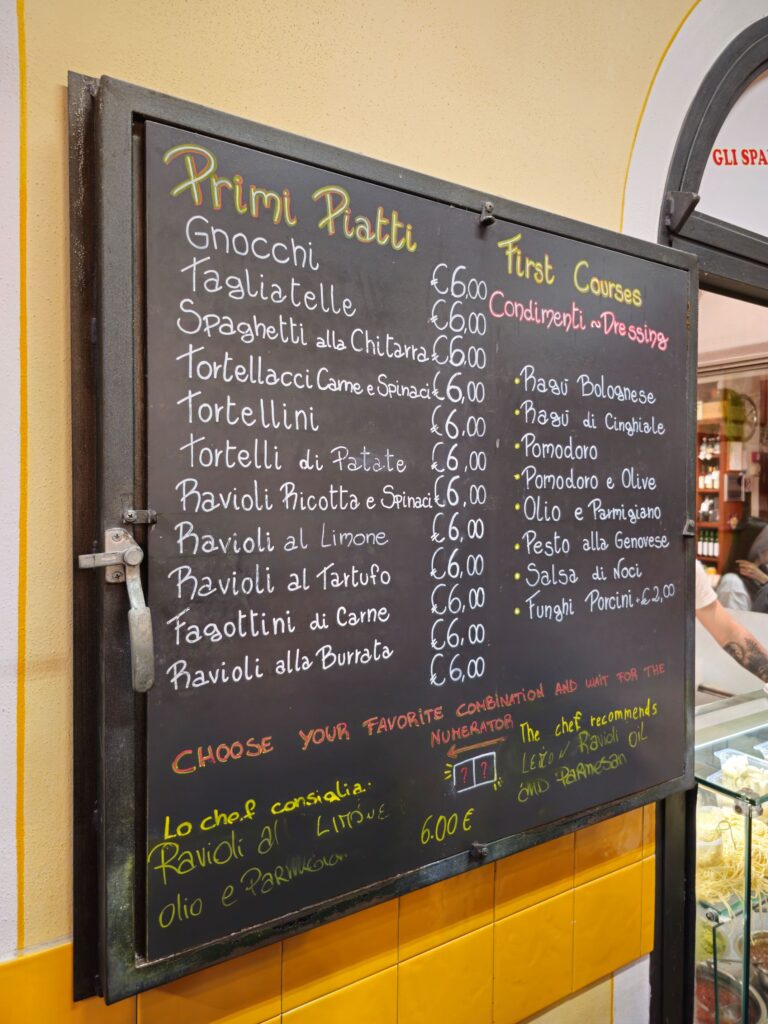 Primi Piatti
Gnocchi €6,00
Tagliatelle €6,00
Spaghetti alla Chitarra €6,00
Tortellacci Carne e Spinaci €6,00
Tortellini €6,00
Tortelli di Patate €6,00
Ravioli Ricotta e Spinaci €6,00
Ravioli al Limone €6,00
Ravioli al Tartufo €6,00
Fagottini di Carne €6,00
Ravioli alla Burrata €6,00
First Courses
Condimenti ~ Dressing
• Ragù Bolognese
• Ragù di Cinghiale
• Pomodoro
• Pomodoro e Olive
• Olio e Parmigiano
• Pesto alla Genovese
• Salsa di Noci
• Funghi Porcini + €2,00
CHOOSE YOUR FAVORITE COMBINATION AND WAIT FOR THE
NUMERATOR
? ?
Lo chef consiglia:
Ravioli al LIMONE
olio e 6.00 €
The chef recommends
Ravioli OIL
AND PARMESAN
GLI SPA